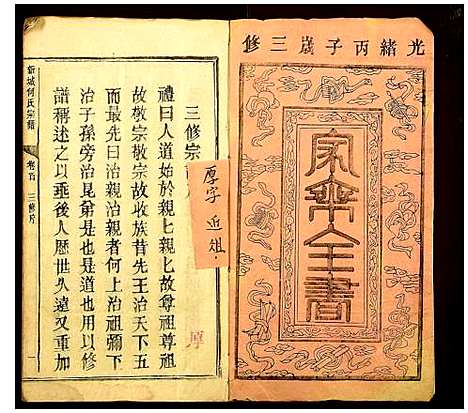 光緒丙子歲三修
家乘全書
三修宗
厚字 近祖
禮曰人道始於親七親七故尊祖尊祖
故敬宗敬宗故收族昔先王治天下五
而最先曰治親治親者何上治祖禰下
治子孫旁治昆弟是也是道也用以修
譜稱述之以垂後人歷世久遠又重加
厚
新城何氏宗譜
卷首
三修
一